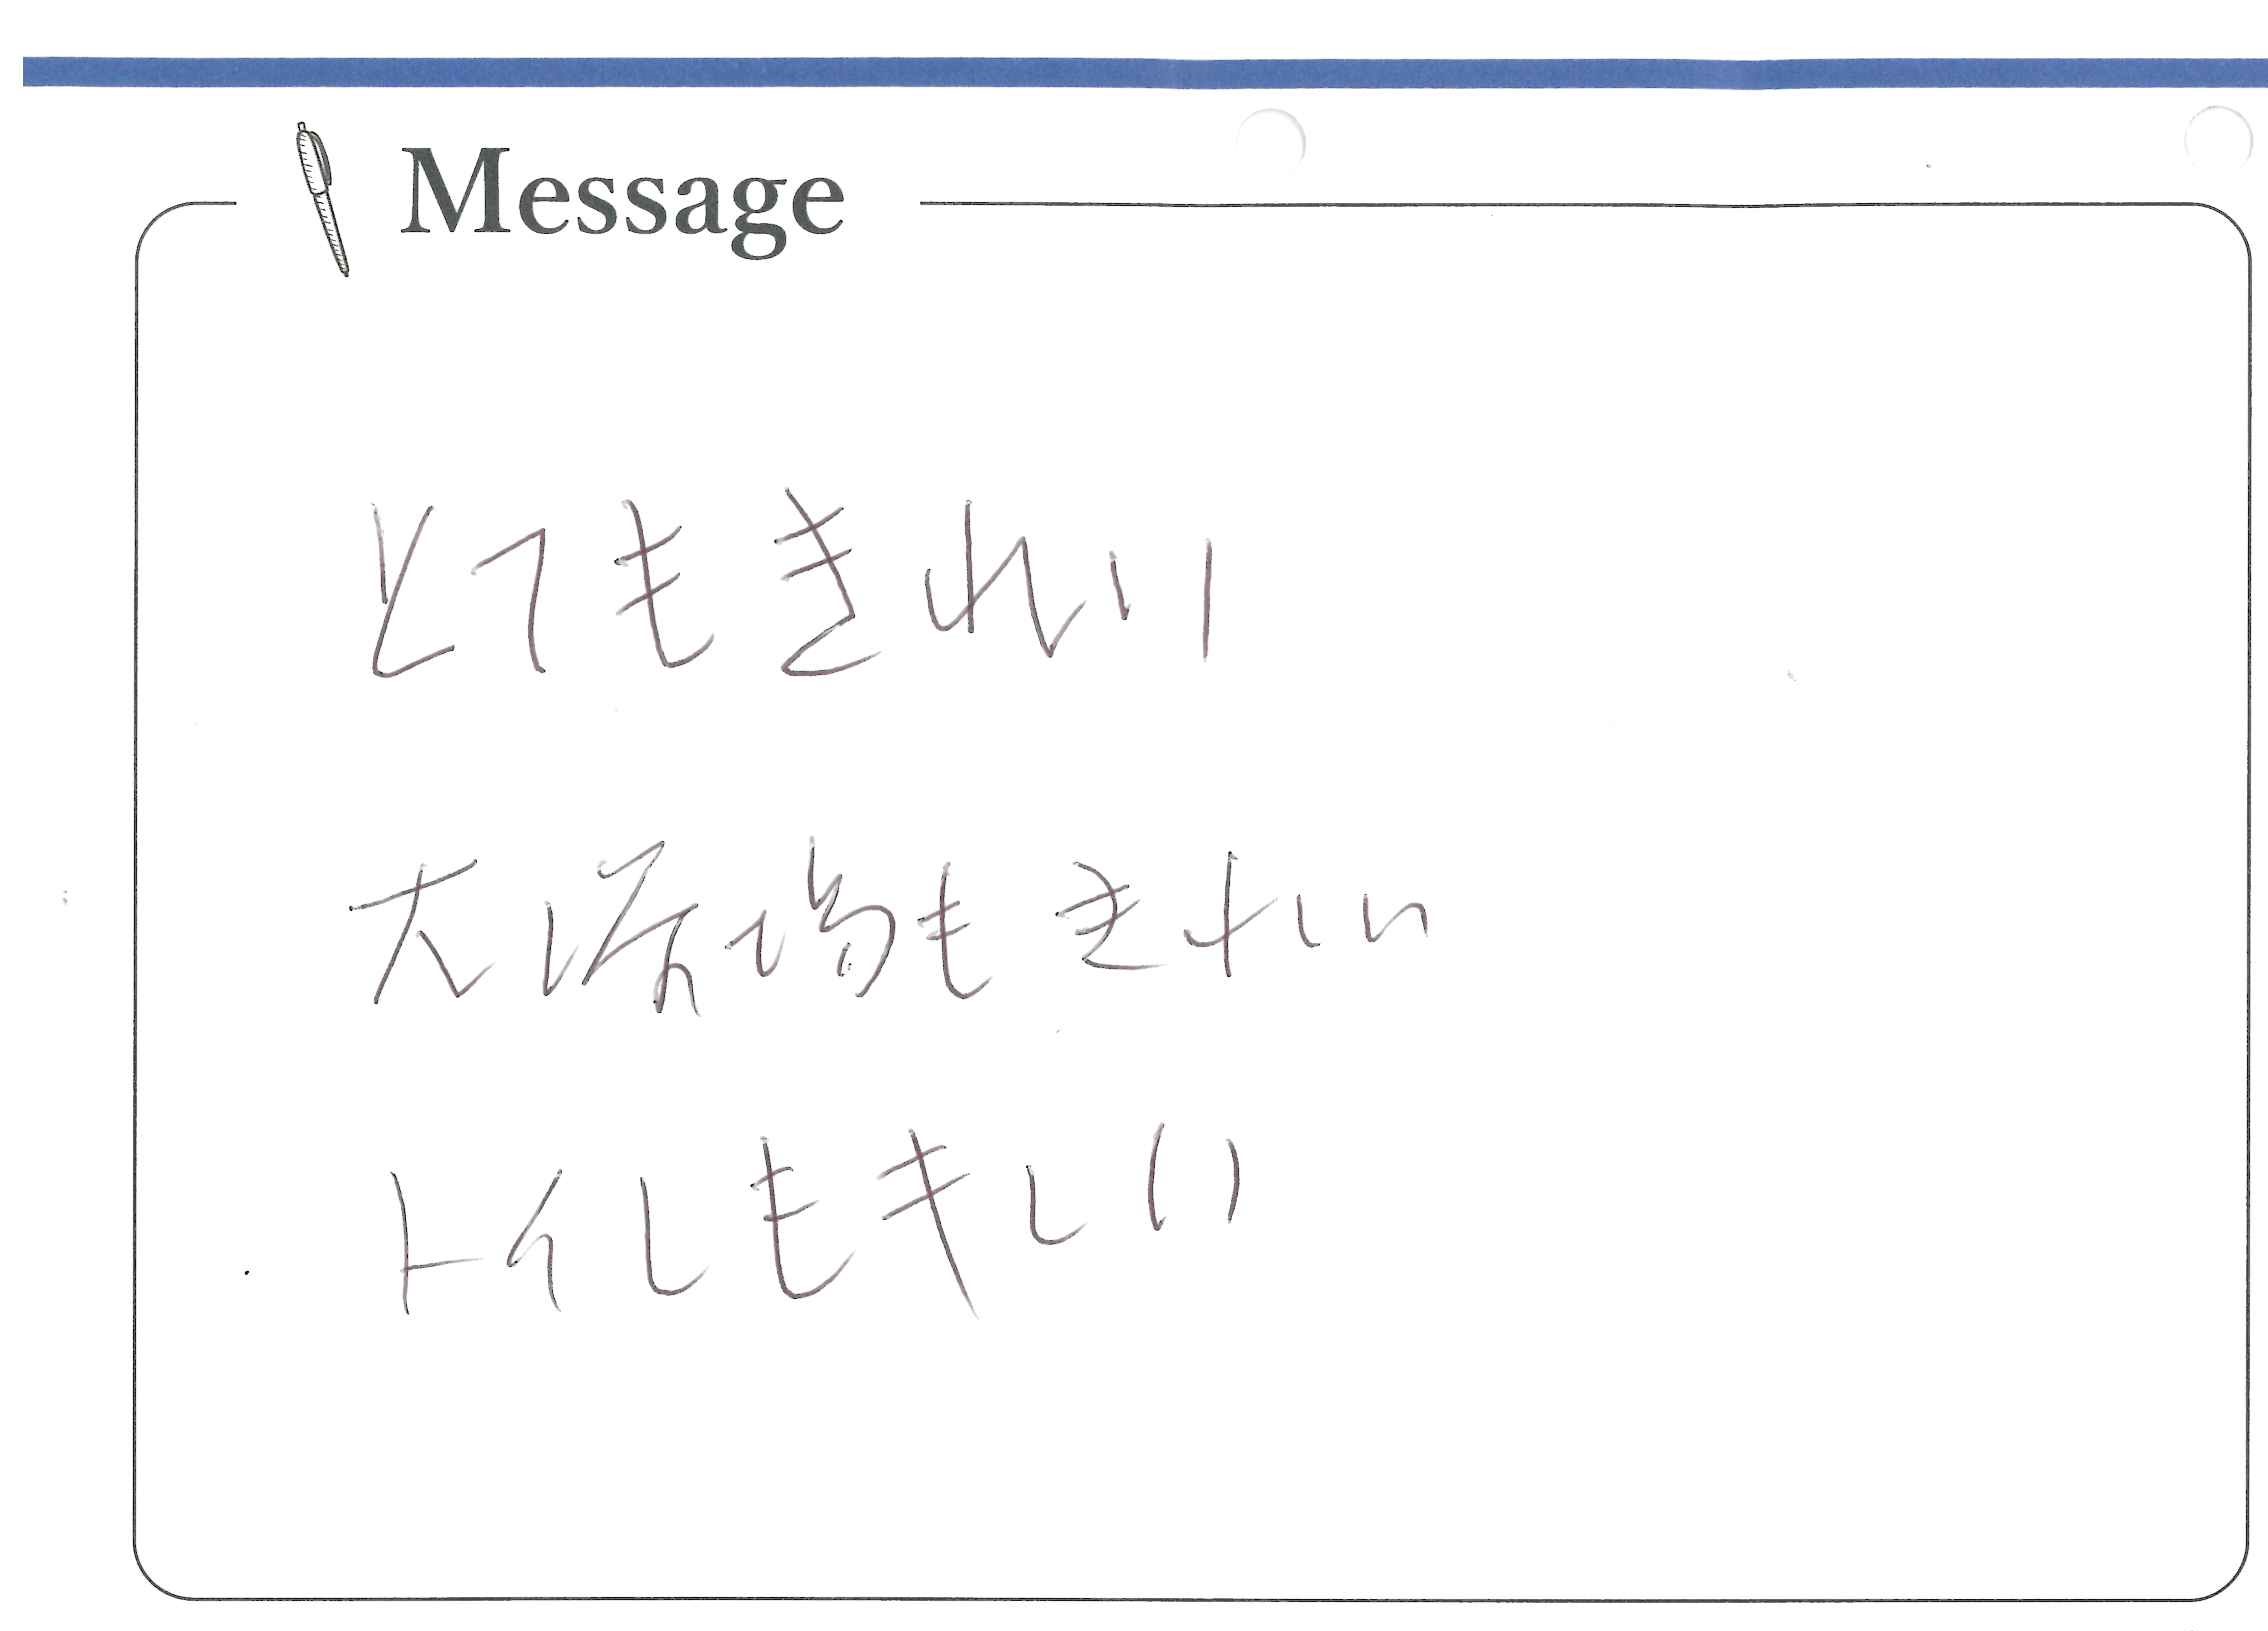 Message
とてもきれい
大浴場もきれい
トイレもキレイ